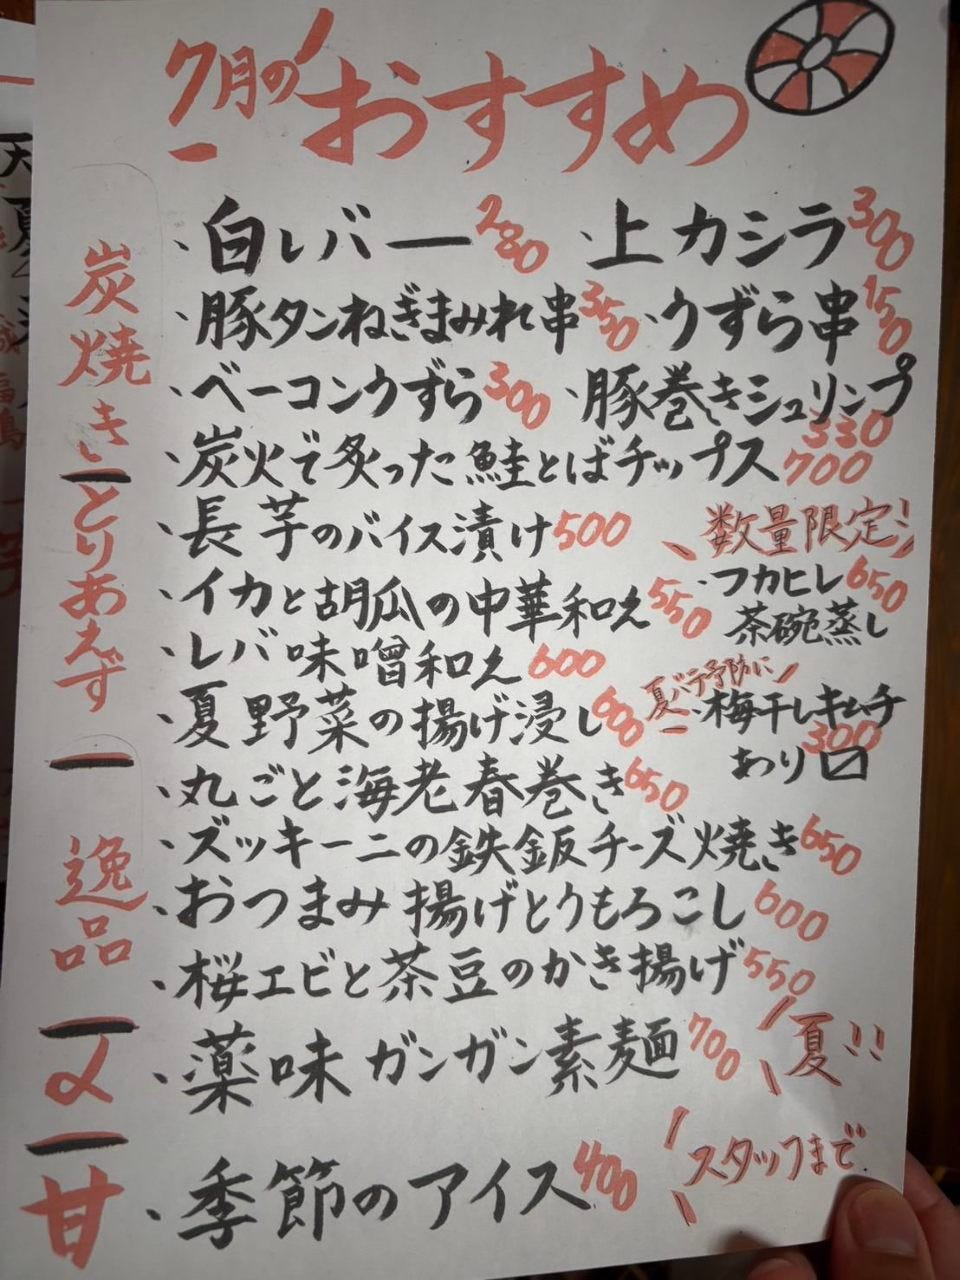 7月の
おすすめ
炭焼き
・白レバー 280
・上カシラ 300
・豚タンねぎまみれ串 350
・うずら串 150
・ベーコンうずら 300
・豚巻きシュリンプ 330
とりあえず
・炭火で炙った鮭とばチップス 700
・長芋のバイス漬け 500
・イカと胡瓜の中華和え 550
・レバ味噌和え 600
・夏野菜の揚げ浸し 600
数量限定!
・フカヒレ 650
茶碗蒸し
夏バテ予防に!
・梅干しキムチ 300
あり〼
逸品
・丸ごと海老春巻き 650
・ズッキーニの鉄鈑チーズ焼き 650
・おつまみ揚げとうもろこし 600
・桜エビと茶豆のかき揚げ 550
〆
・薬味ガンガン素麺 700
夏!!
甘
・季節のアイス 400
スタッフまで